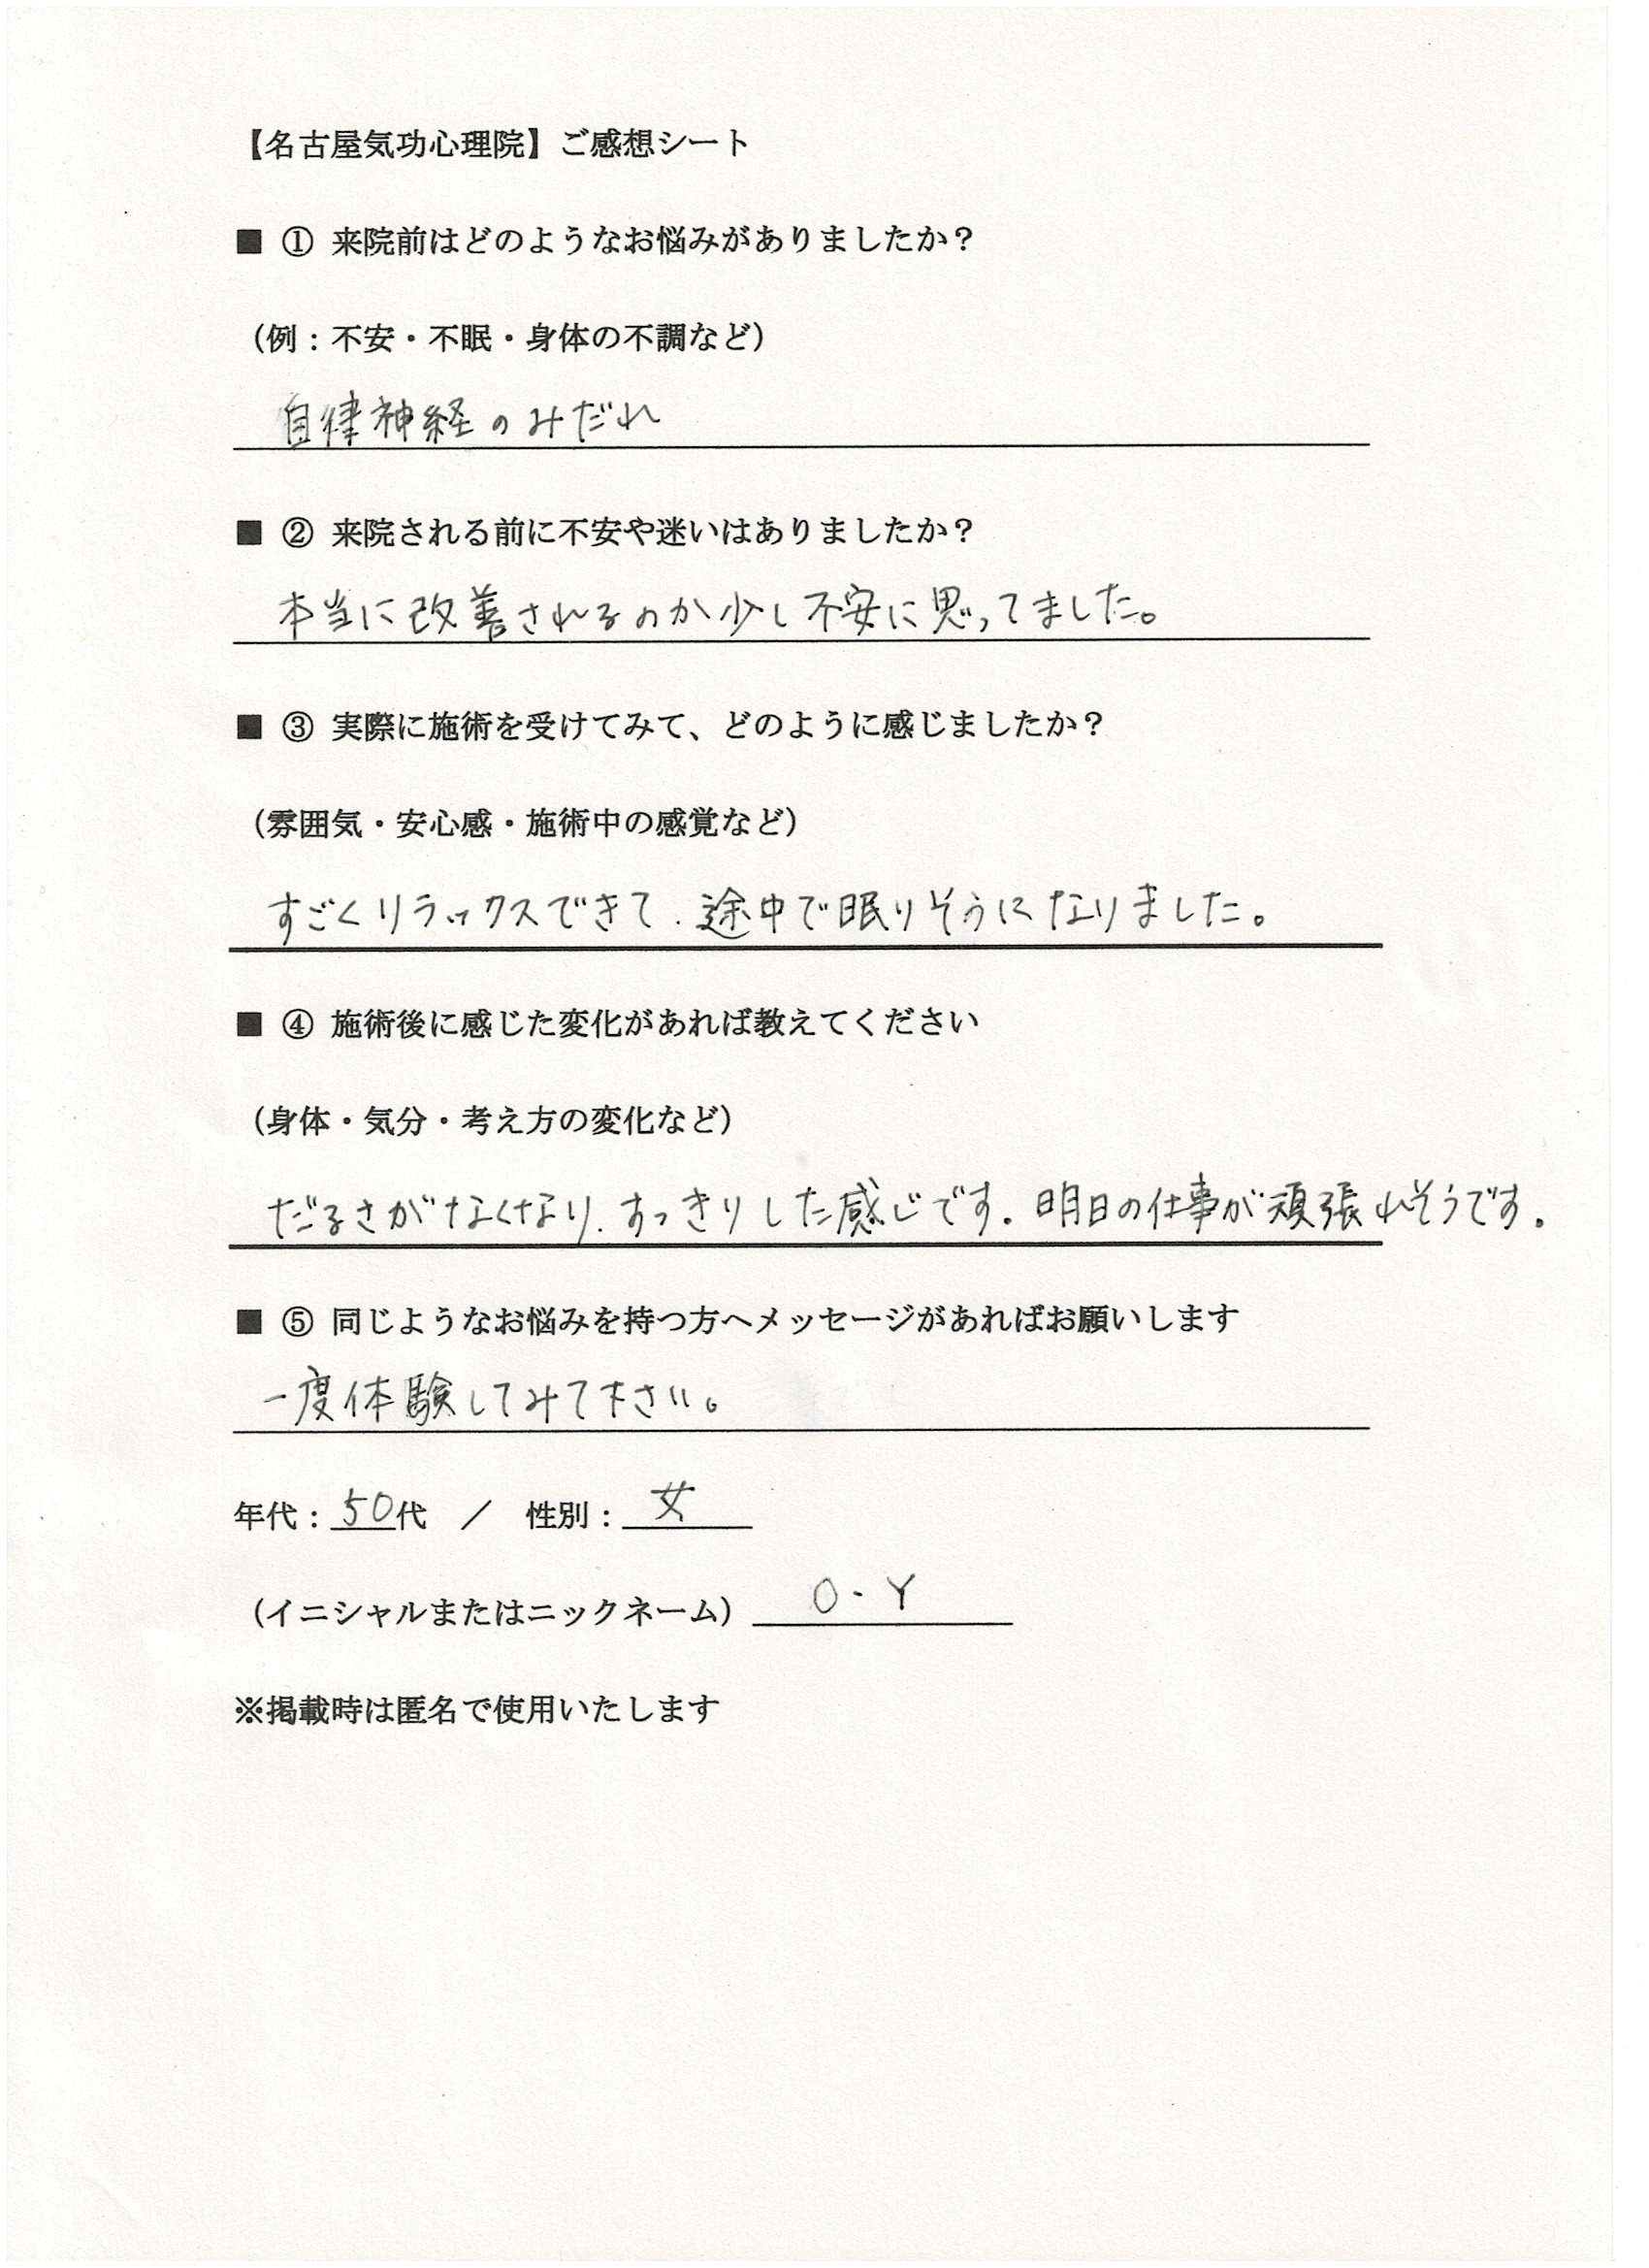 【名古屋気功心理院】ご感想シート
■ ① 来院前はどのようなお悩みがありましたか？
（例：不安・不眠・身体の不調など）
自律神経のみだれ
■ ② 来院される前に不安や迷いはありましたか？
本当に改善されるのか少し不安に思ってました。
■ ③ 実際に施術を受けてみて、どのように感じましたか？
（雰囲気・安心感・施術中の感覚など）
すごくリラックスできて、途中で眠りそうになりました。
■ ④ 施術後に感じた変化があれば教えてください
（身体・気分・考え方の変化など）
だるさがなくなり、すっきりした感じです。明日の仕事が頑張れそうです。
■ ⑤ 同じようなお悩みを持つ方へメッセージがあればお願いします
一度体験してみて下さい。
年代：50代 ／ 性別：女
（イニシャルまたはニックネーム） O・Y
※掲載時は匿名で使用いたします